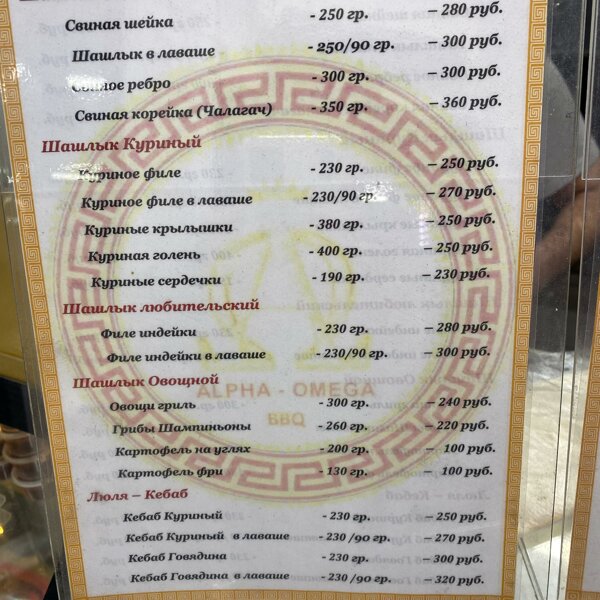 Свиная шейка - 250 гр. – 280 руб.
Шашлык в лаваше - 250/90 гр. – 300 руб.
Свиное ребро - 300 гр. – 300 руб.
Свиная корейка (Чалагач) - 350 гр. – 360 руб.
Шашлык Куриный
Куриное филе - 230 гр. – 250 руб.
Куриное филе в лаваше - 230/90 гр. – 270 руб.
Куриные крылышки - 380 гр. – 250 руб.
Куриная голень - 400 гр. – 250 руб.
Куриные сердечки - 190 гр. – 230 руб.
Шашлык любительский
Филе индейки - 230 гр. – 280 руб.
Филе индейки в лаваше - 230/90 гр. – 300 руб.
Шашлык Овощной
ALPHA - OMEGA
Овощи гриль - 300 гр. – 240 руб.
BBQ
Грибы Шампиньоны - 260 гр. – 220 руб.
Картофель на углях - 200 гр. – 100 руб.
Картофель фри - 130 гр. – 100 руб.
Люля – Кебаб
Кебаб Куриный - 230 гр. – 250 руб.
Кебаб Куриный в лаваше - 230 /90 гр. – 270 руб.
Кебаб Говядина - 230 гр. – 300 руб.
Кебаб Говядина в лаваше - 230 /90 гр. – 320 руб.